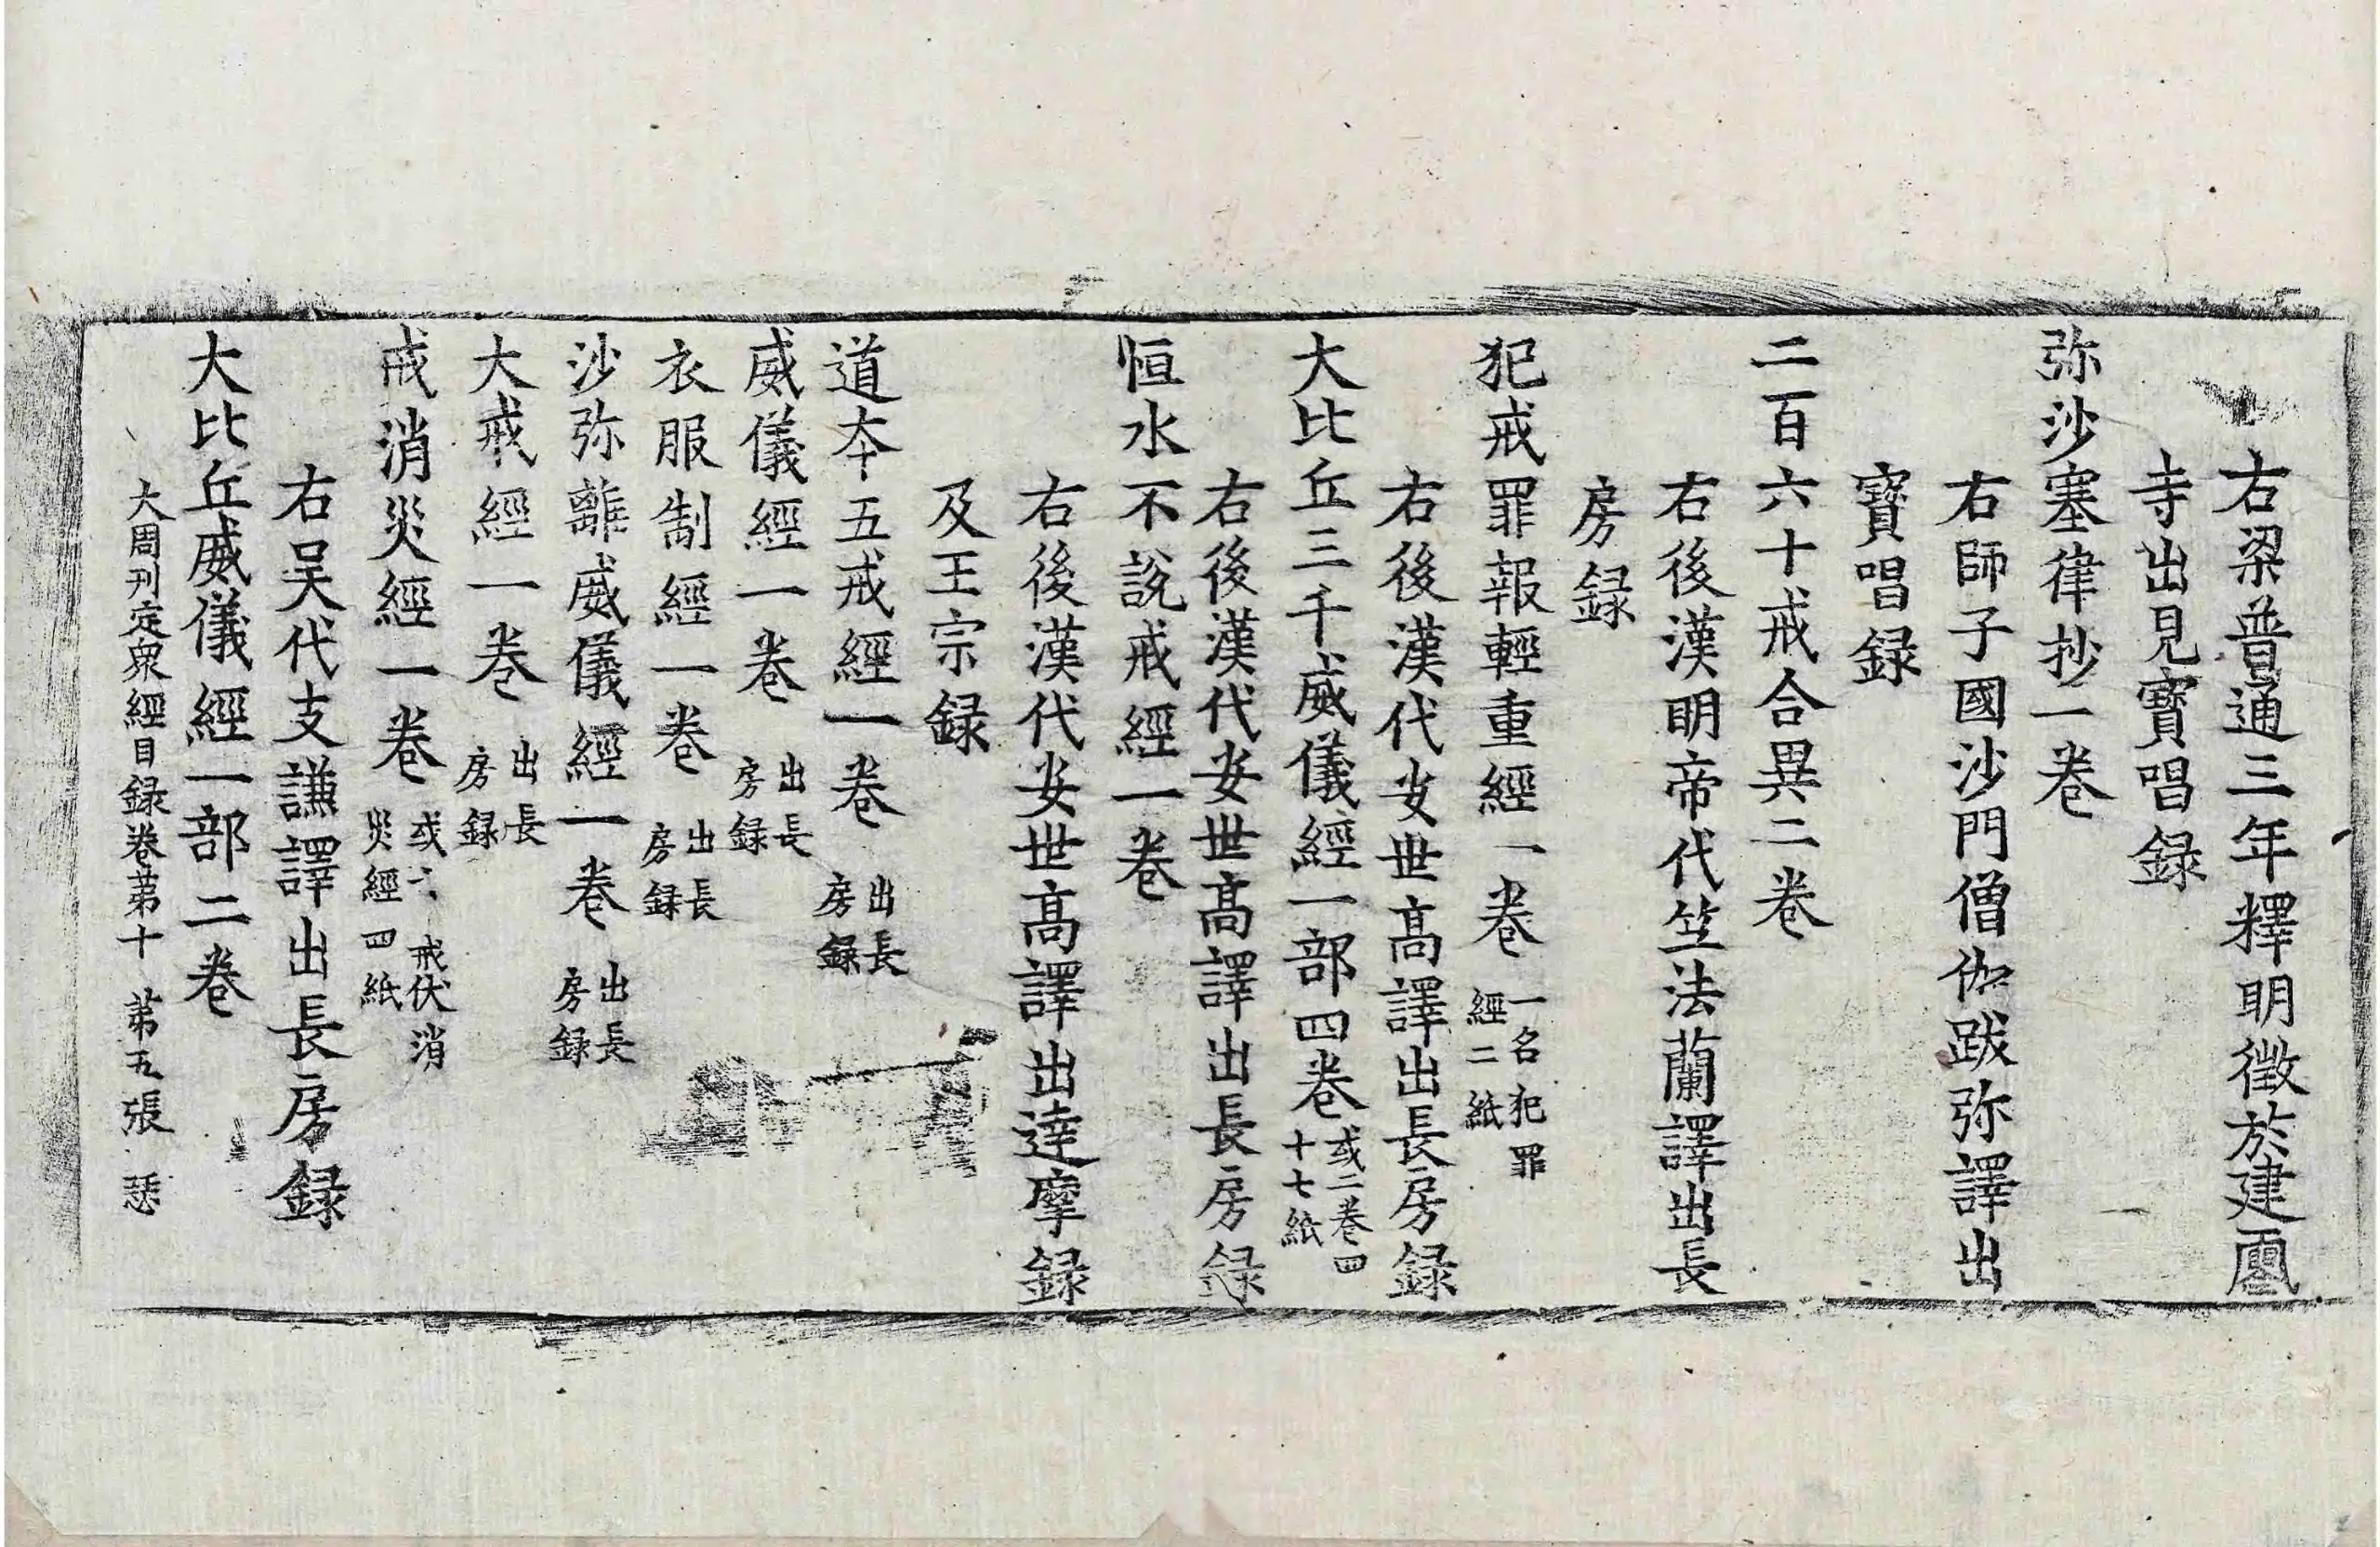 右梁普通三年釋明徽於建
寺出見寶唱録
弥沙塞律抄一卷
右師子國沙門僧伽跋弥譯出
寶唱録
二百六十戒合異二卷
右後漢明帝代竺法蘭譯出長
房録
犯戒罪報輕重經一卷 一名犯罪
經二紙
右後漢代安世高譯出長房録
大比丘三千威儀經一部四卷 或二卷四
十七紙
右後漢代安世高譯出長房録
恒水不說戒經一卷
右後漢代安世高譯出達摩録
及王宗録
道本五戒經一卷 出長
房録
威儀經一卷 出長
房録
衣服制經一卷 出長
房録
沙弥離威儀經一卷 出長
房録
大戒經一卷 出長
房録
戒消災經一卷 或云戒伏消
災經四紙
右吳代支謙譯出長房録
大比丘威儀經一部二卷
大周刊定衆經目録卷苐十 苐五張